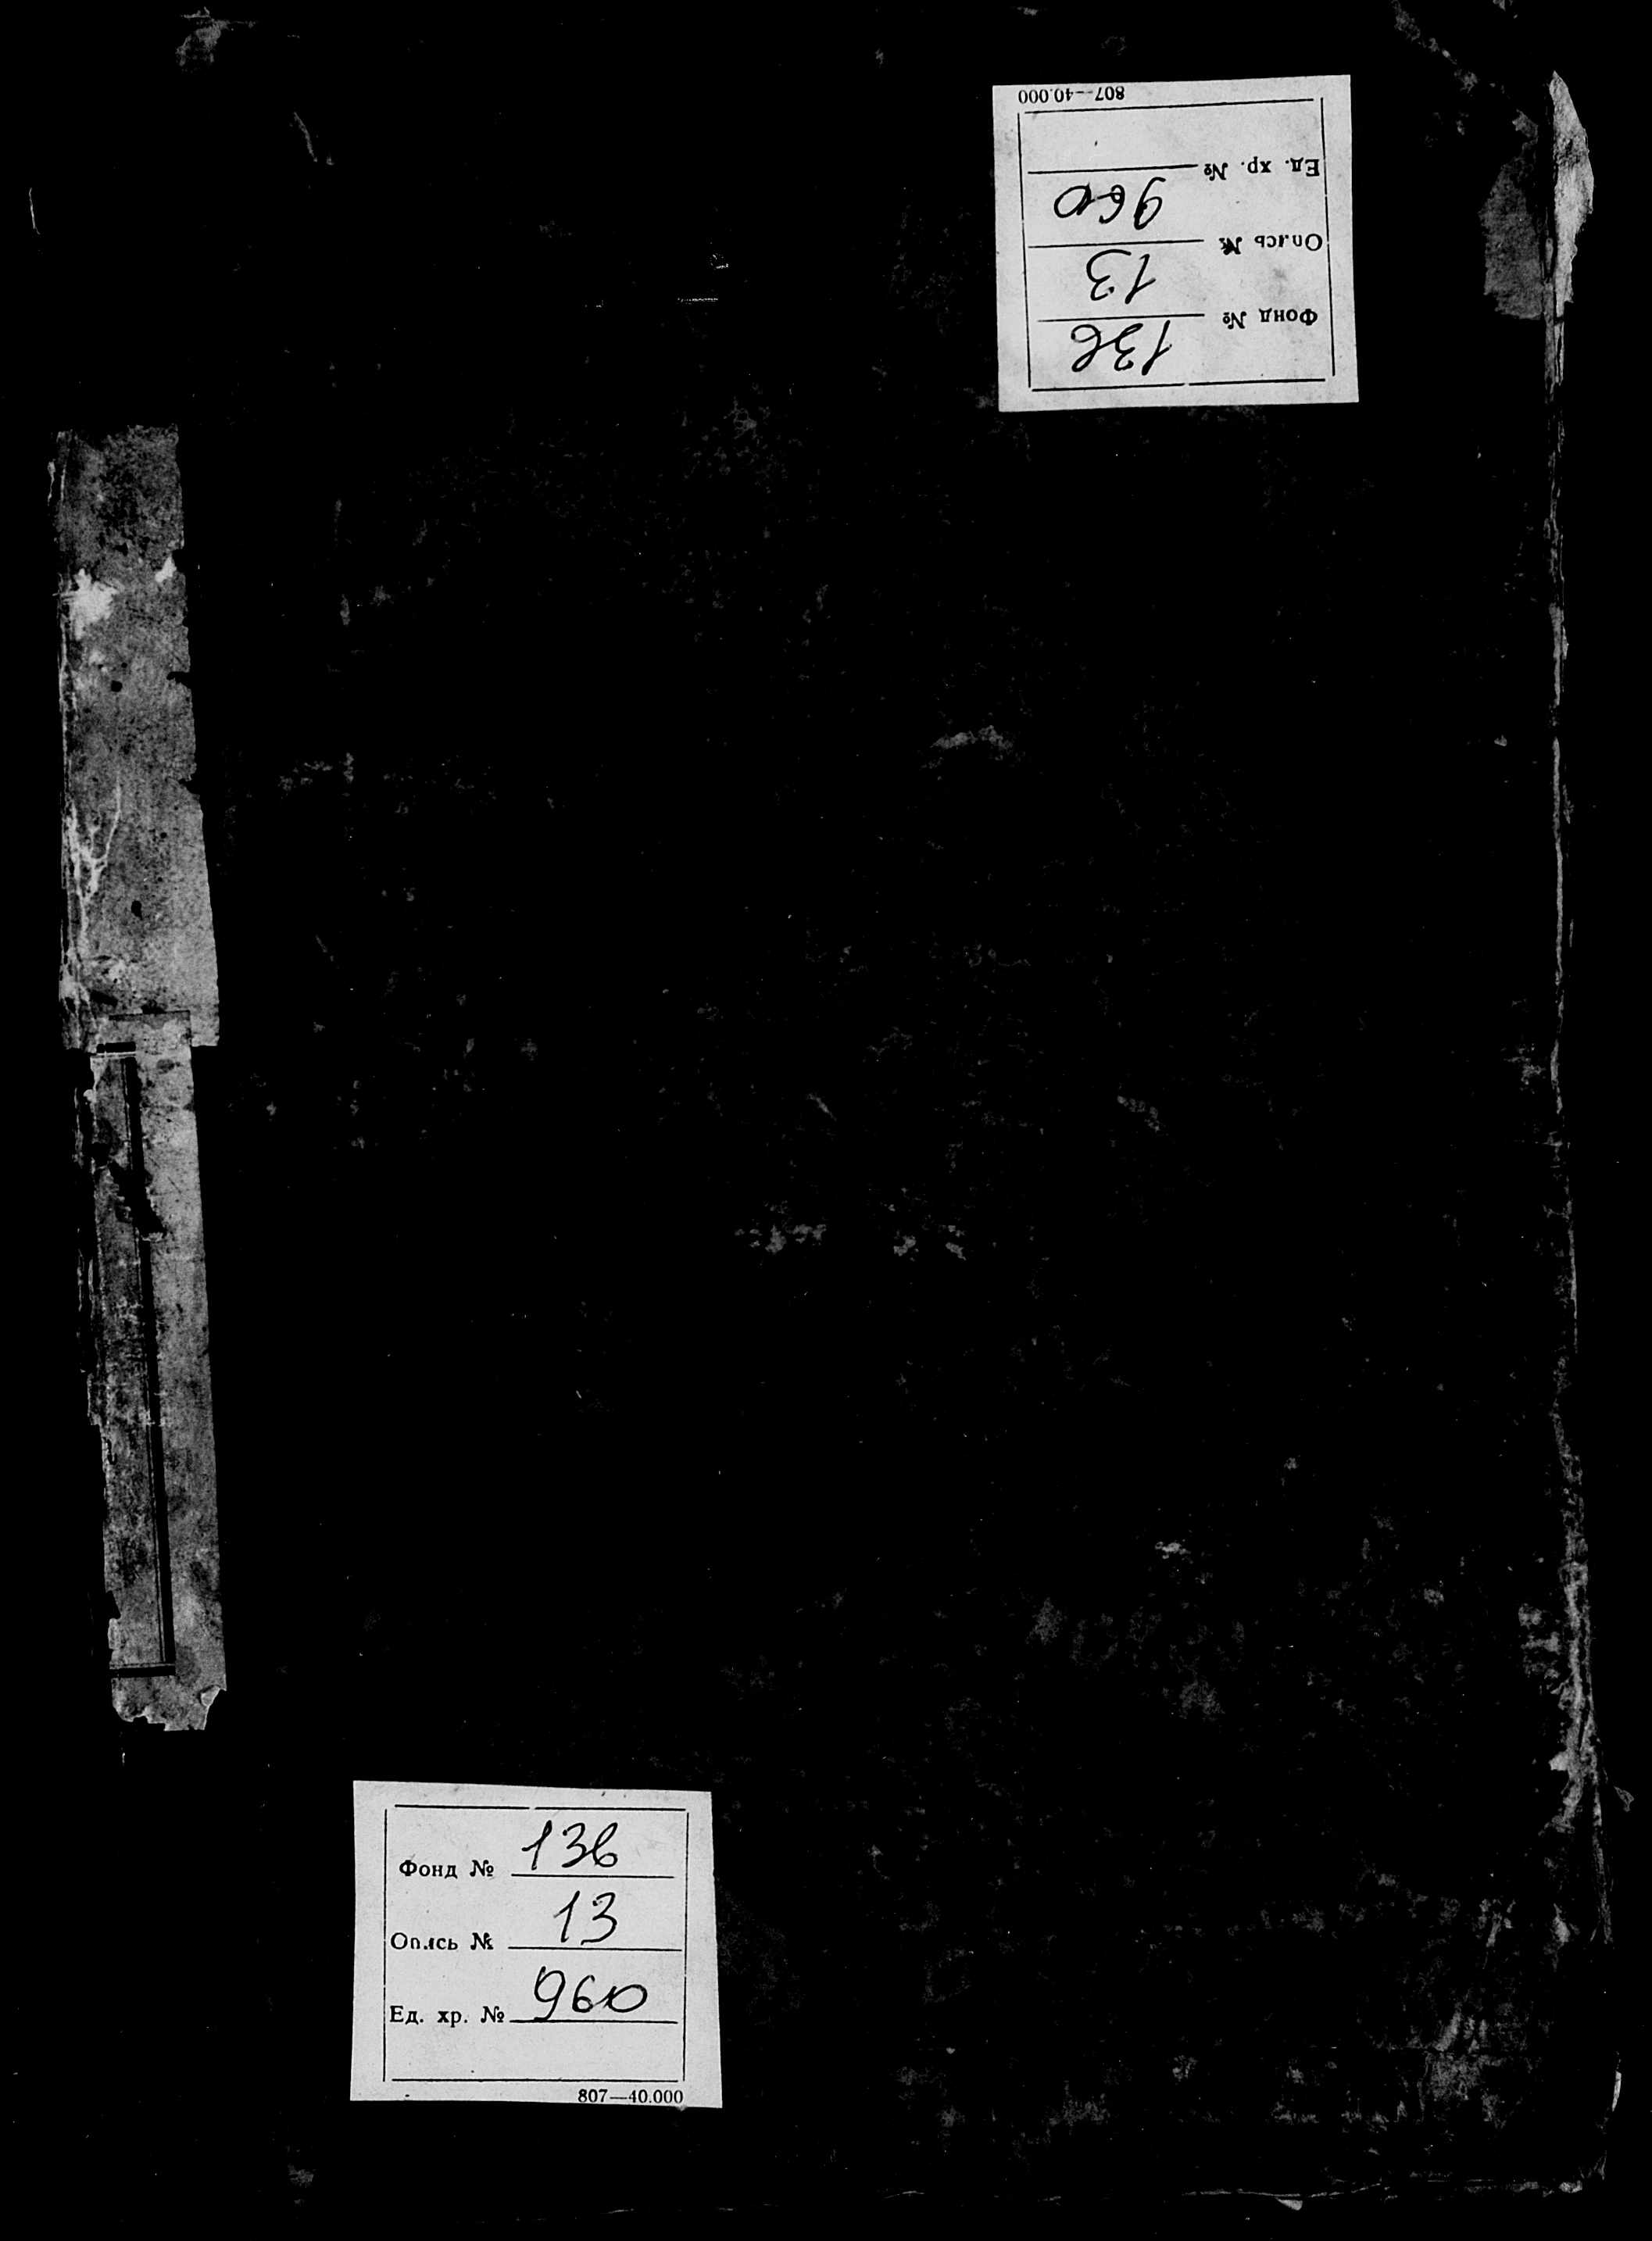 Фонд № 136
Опись № 13
Ед. хр. № 960
807—40.000
Фонд № 136
Опись № 13
Ед. хр. № 960
807—40.000